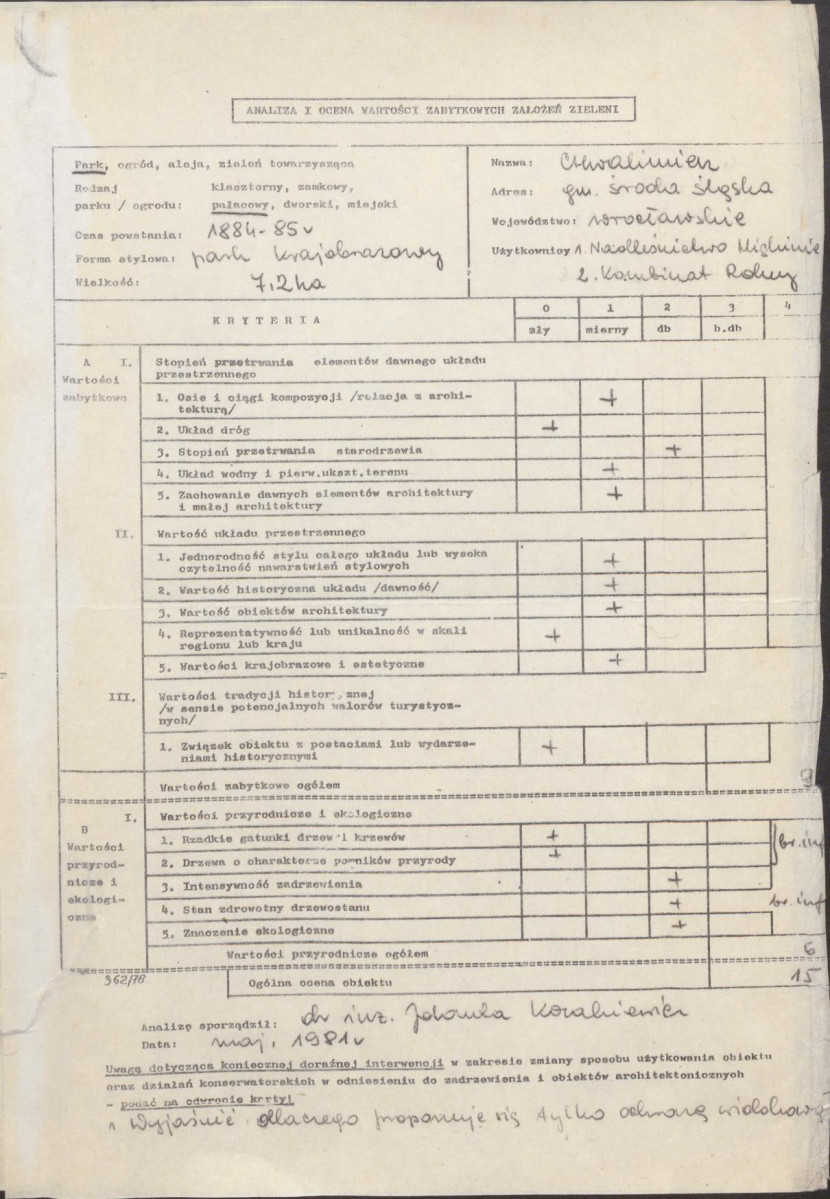 ANALIZA I OCENA WARTOŚCI ZABYTKOWYCH ZAŁOŻEŃ ZIELENI
Park, ogród, aleja, zieleń towarzysząca
Rodzaj klasztorny, zamkowy,
parku / ogrodu: pałacowy, dworski, miejski
Czas powstania: 1884-85
Forma stylowa: park krajobrazowy
Wielkość: 7,2ha
Nazwa: Chwalimierz
Adres: gm. Środa Śląska
Województwo: wrocławskie
Użytkownicy 1. Nadleśnictwo Miękinie
2. Kombinat Rolny
KRYTERIA
0 1 2 3 4
zły mierny db b.db
A I. Stopień przetrwania elementów dawnego układu
Wartości przestrzennego
zabytkowe
1. Osie i ciągi kompozycji /relacja z archi-
tekturą/ +
2. Układ dróg +
3. Stopień przetrwania starodrzewia +
4. Układ wodny i pierw.ukszt.terenu +
5. Zachowanie dawnych elementów architektury
i małej architektury +
II. Wartość układu przestrzennego
1. Jednorodność stylu całego układu lub wysoka
czytelność nawarstwień stylowych +
2. Wartość historyczna układu /dawność/ +
3. Wartość obiektów architektury +
4. Reprezentatywność lub unikalność w skali
regionu lub kraju +
5. Wartości krajobrazowe i estetyczne +
III. Wartości tradycji historycznej
/w sensie potencjalnych walorów turystycz-
nych/
1. Związek obiektu z postaciami lub wydarze-
niami historycznymi +
Wartości zabytkowe ogółem 9
B I. Wartości przyrodnicze i ekologiczne
Wartości
przyrod-
nicze i
ekologi-
czne
1. Rzadkie gatunki drzew i krzewów +
2. Drzewa o charakterze pomników przyrody + br. inf
3. Intensywność zadrzewienia +
4. Stan zdrowotny drzewostanu + br. inf
5. Znaczenie ekologiczne +
Wartości przyrodnicze ogółem 6
962/78
Ogólna ocena obiektu 15
Analizę sporządził: dr inż.
Data: maj, 1981
Uwagę dotyczącą koniecznej doraźnej interwencji w zakresie zmiany sposobu użytkowania obiektu
oraz działań konserwatorskich w odniesieniu do zadrzewienia i obiektów architektonicznych
- podać na odwrocie karty!
Wyjaśnić dlaczego proponuje się tylko ochronę widokową